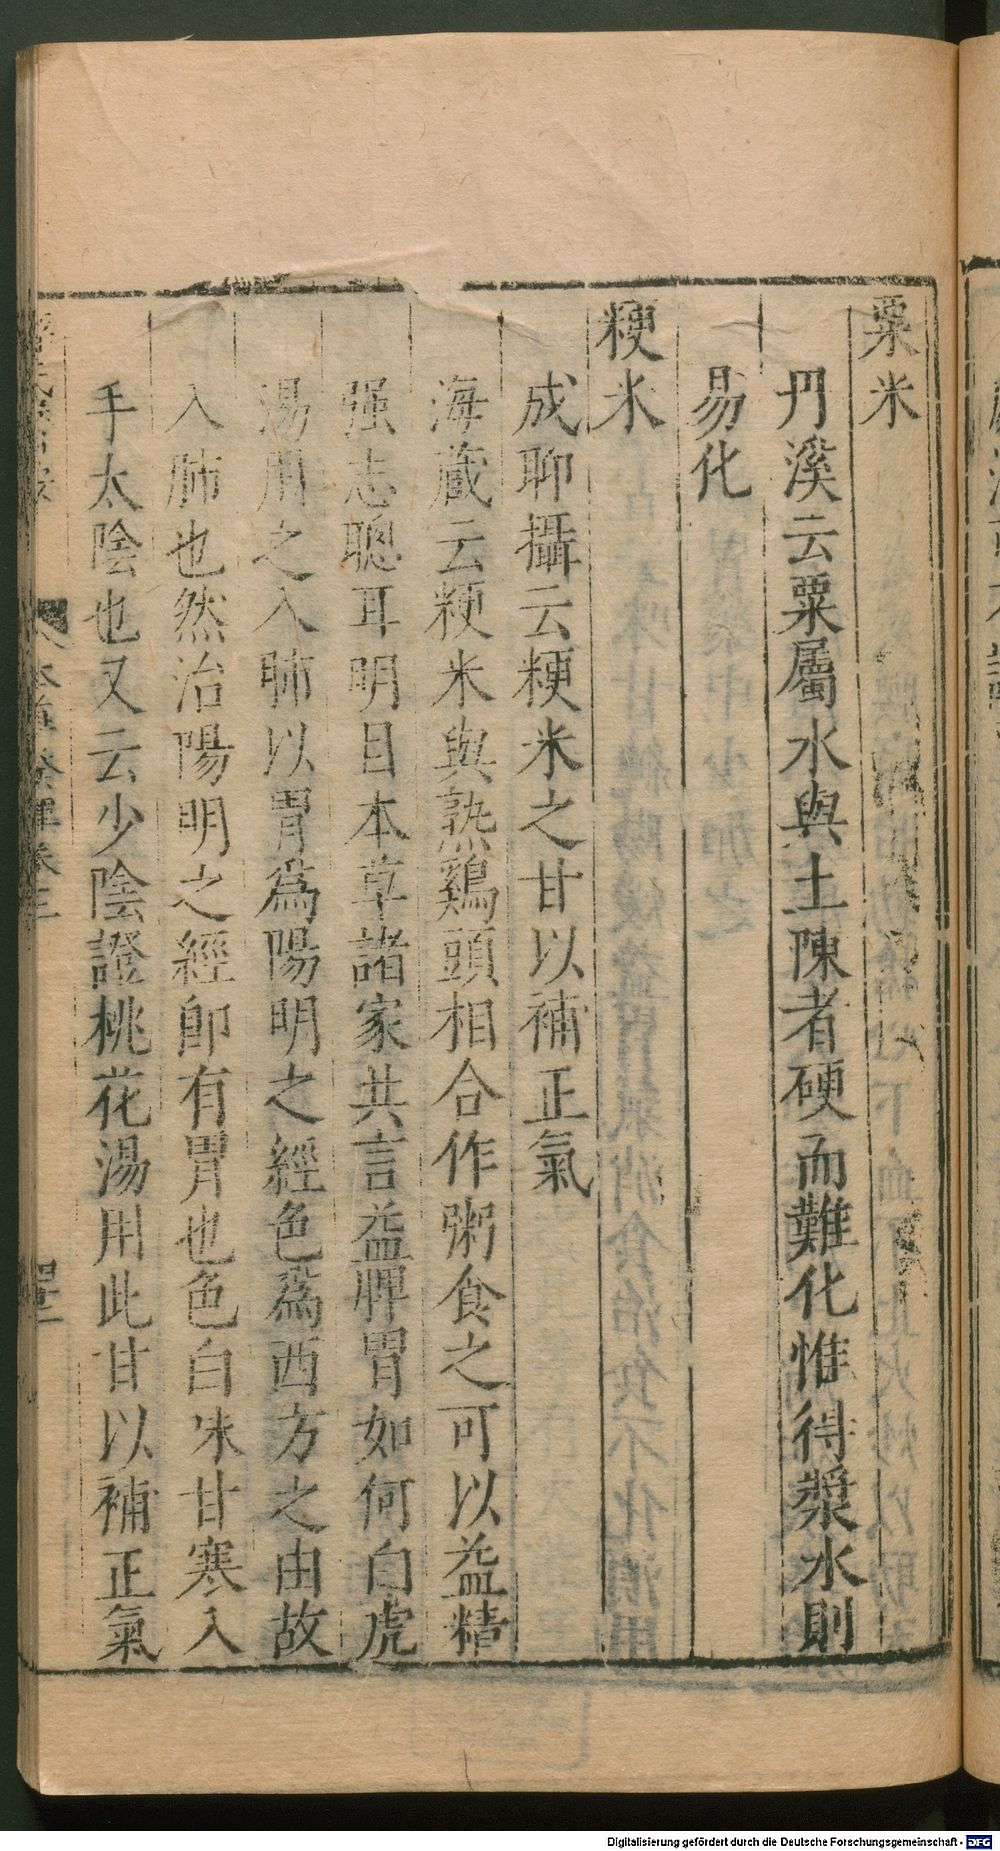 粟米
丹溪云粟屬水與土陳者硬而難化惟得漿水則
易化
粳米
成聊攝云粳米之甘以補正氣
海藏云粳米與熟鷄頭相合作粥食之可以益精
强志聰耳明目本草諸家共言益脾胃如何白虎
湯用之入肺以胃爲陽明之經色爲西方之白故
入肺也然治陽明之經卽有胃也色白味甘寒入
手太陰也又云少陰證桃花湯用此甘以補正氣
本草發揮卷三
Digitalisierung gefördert durch die Deutsche Forschungsgemeinschaft - DFG